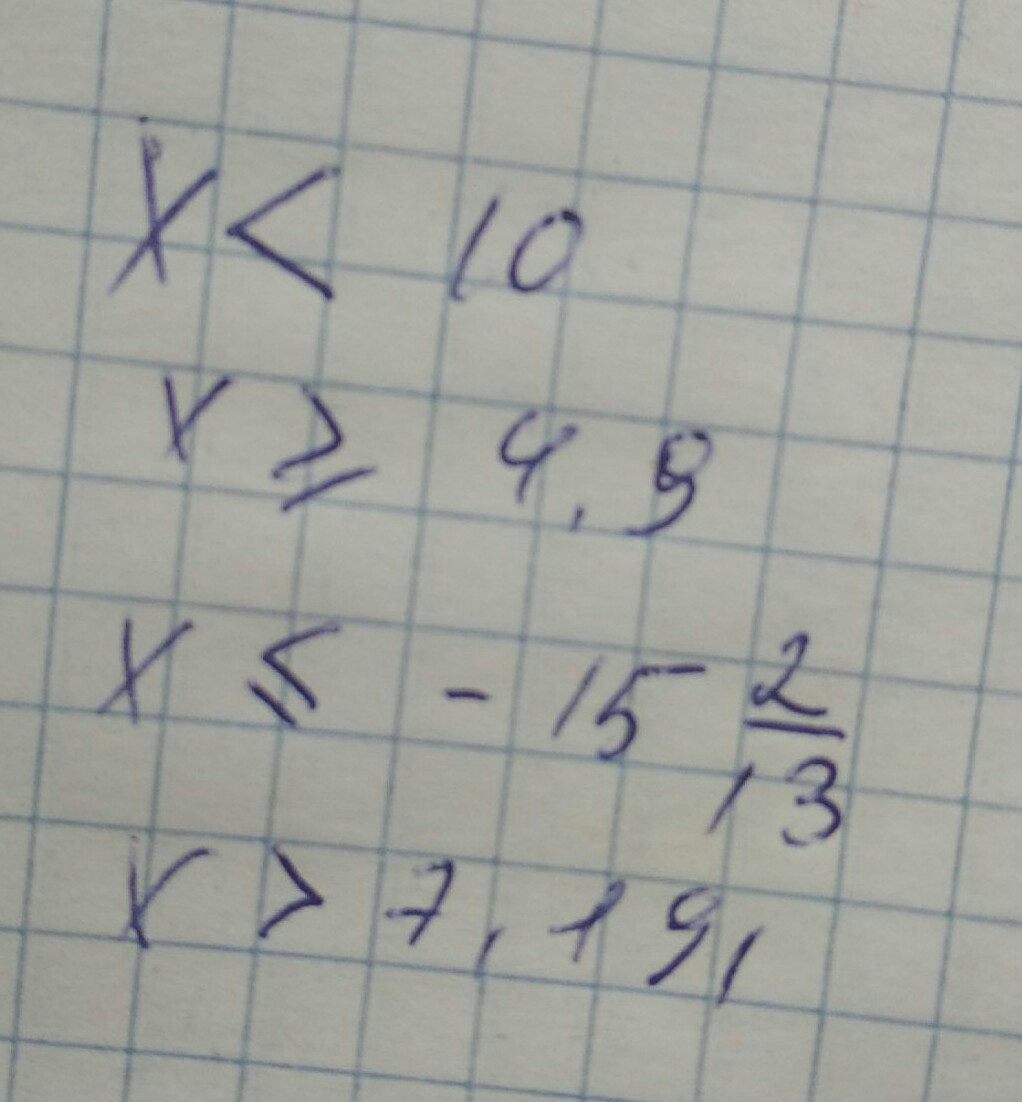 x < 10
x ≥ 4,9
x ≤ - 15 2/13
x > 7,19,